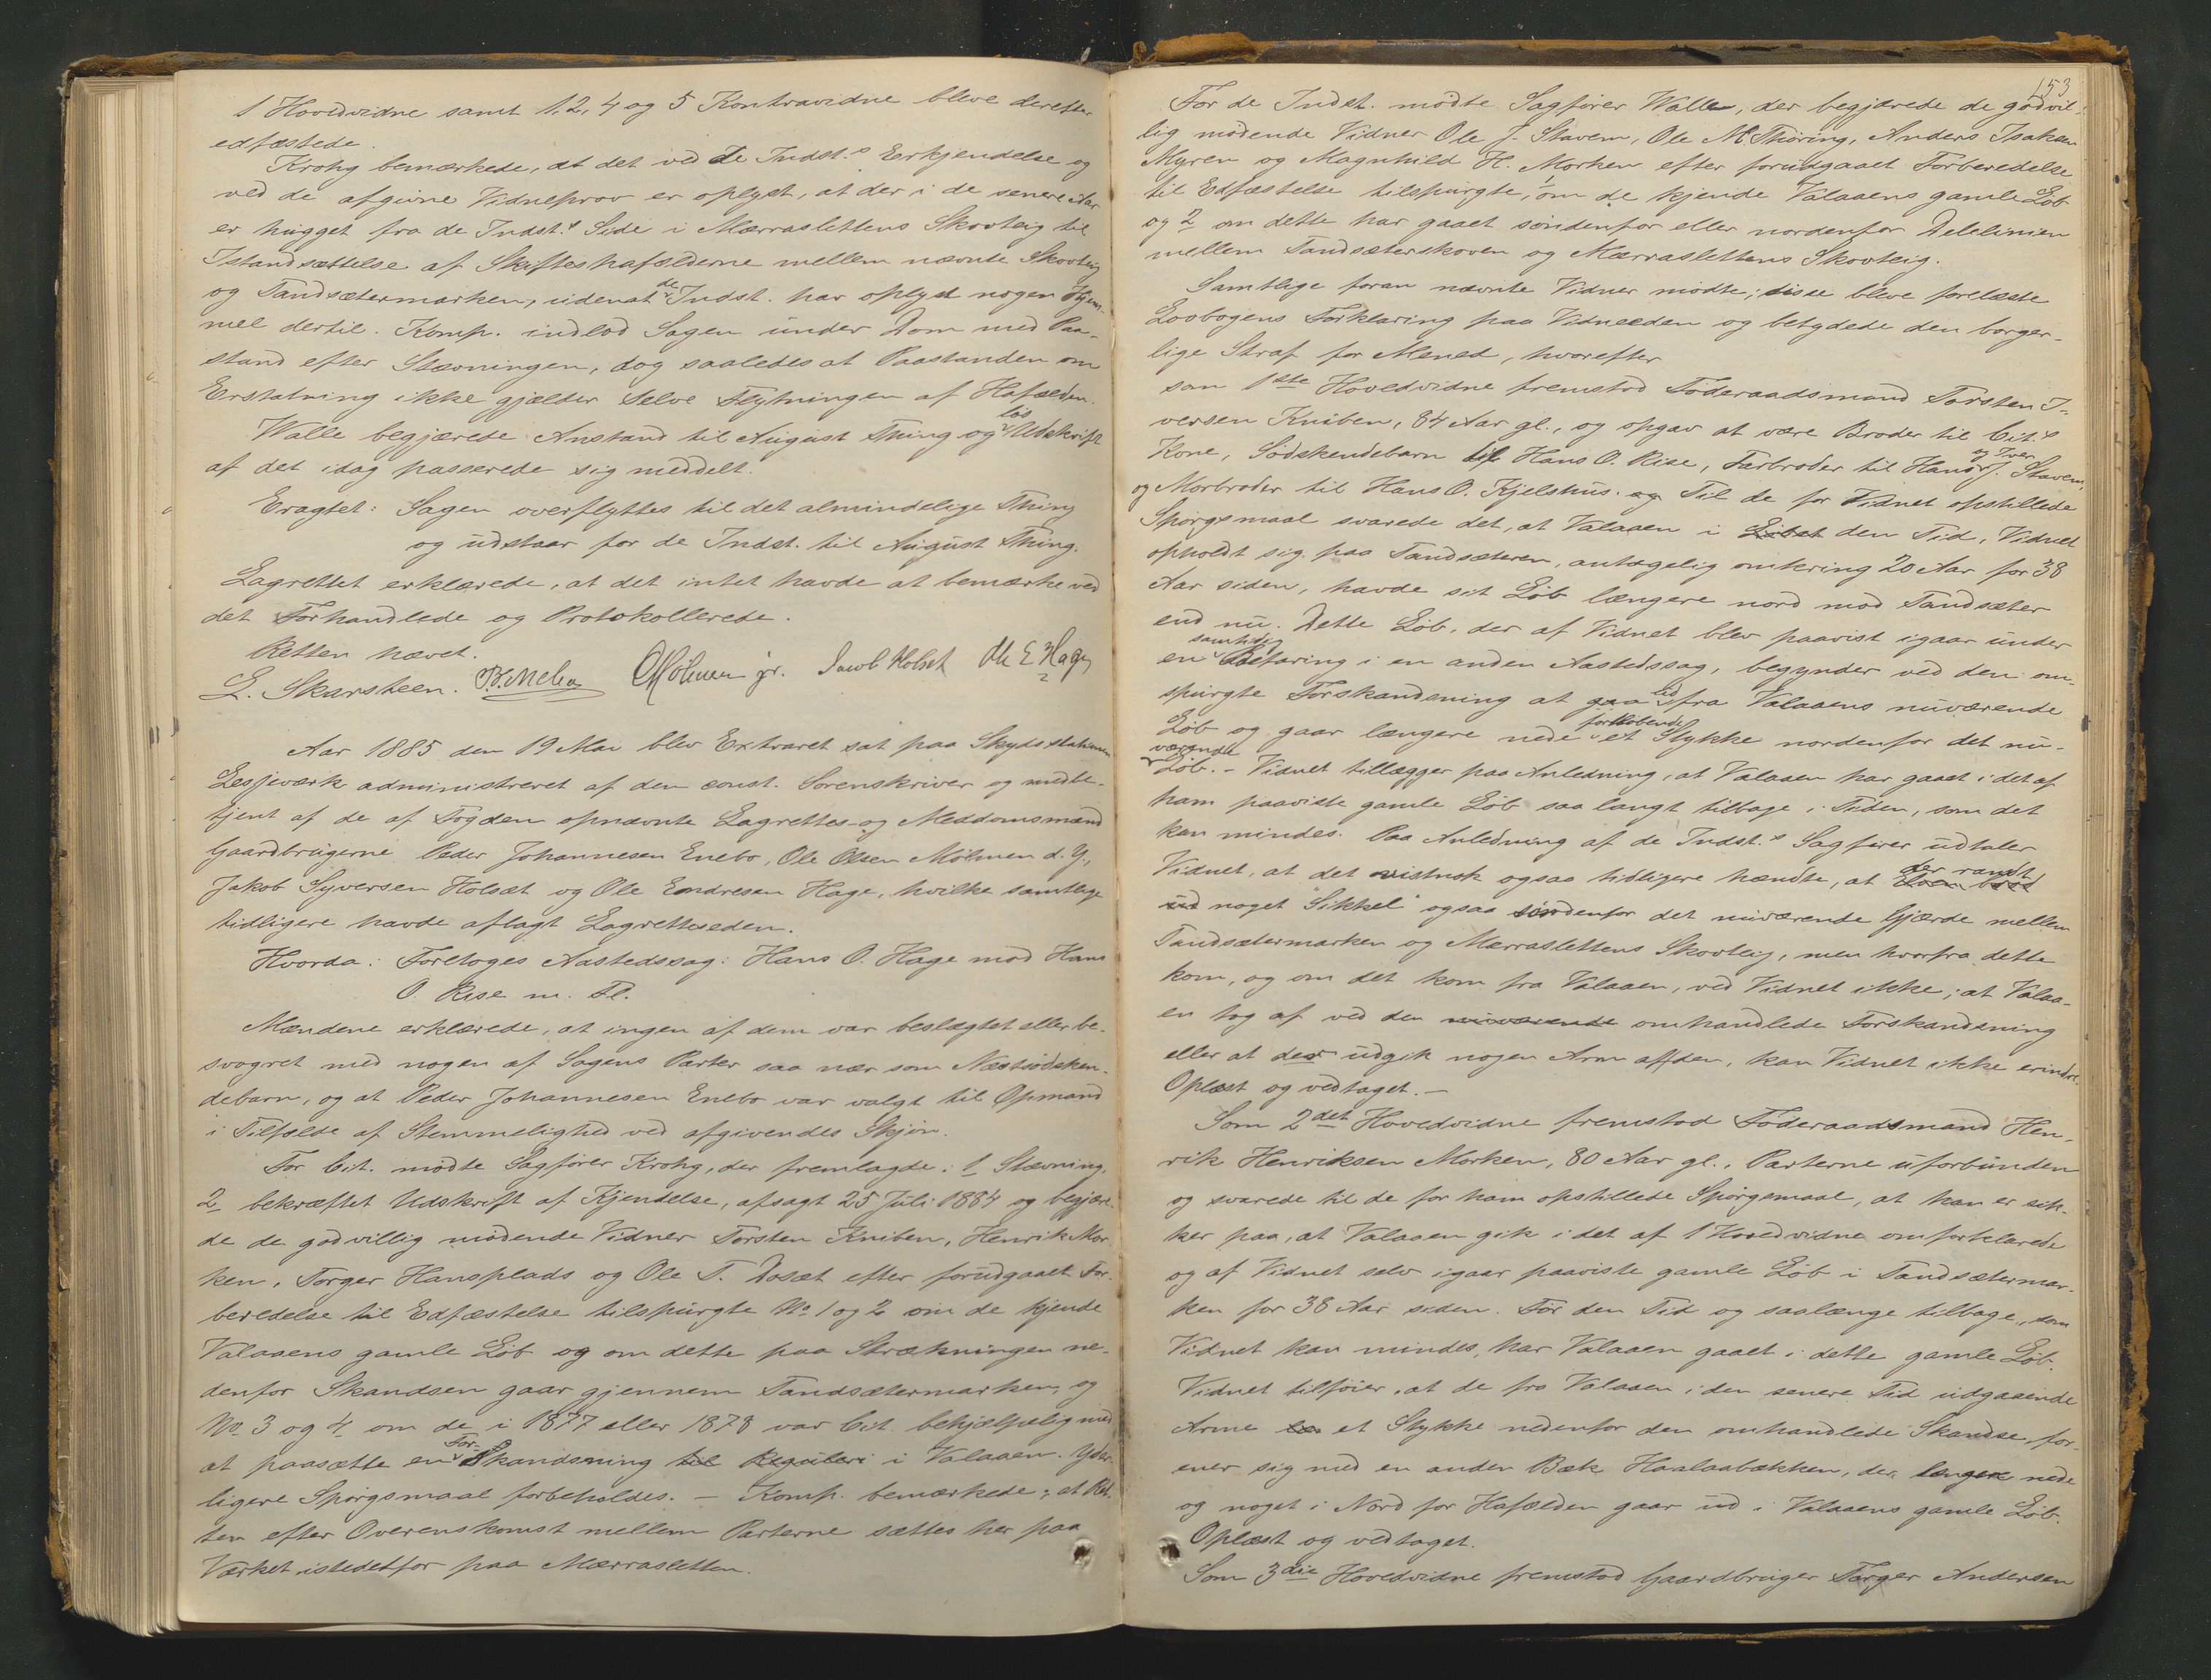 1 Hovedvidne samt 1, 2, 4 og 5 Kontravidne bleve derefter
edfæstede.
Krohg bemærkede, at det ved de Indst.s Erkjendelse og
ved de afgivne Vidneprov er oplyst, at der i de senere Aar
er hugget fra de Indst.s Side i Mærraslettens Skovteig til
Istandsættelse af Skifteshafælderne mellem nævnte Skovteig
og Tandsætermarken, udenat de Indst. har oplyst nogen Hjem-
mel dertil. Komp. indlod Sagen under Dom med Paa-
stand efter Stævningen, dog saaledes at Paastanden om
Erstatning ikke gjælder selve Flytningen af Hafælden.
Walle begjærede Anstand til August Thing og løs Udskrift
af det idag passerede sig meddelt.
Eragtet: Sagen overflyttes til det almindelige Thing
og udstaar for de Indst. til August Thing.
Lagrettet erklærede, at det intet havde at bemærke ved
det Forhandlede og Protokollerede.
Retten hævet.
E. Skarsteen. O Mølmen jr. Jacob Holset Ole E Hage
Aar 1885 den 19 Mai blev Extraret sat paa Skydsstationen
Lesjeværk administreret af den const. Sorenskriver og medbe-
tjent af de af Fogden opnævnte Lagrettes- og Meddomsmænd
Gaardbrugerne Peder Johannesen Enebo, Ole Olsen Mølmen d. Y.,
Jakob Syversen Holsæt og Ole Endresen Hage, hvilke samtlige
tidligere havde aflagt Lagretteseden.
Hvorda: Foretoges Aastedssag: Hans O. Hage mod Hans
O. Rise m. Fl.
Mændene erklærede, at ingen af dem var beslægtet eller be-
svogret med nogen af Sagens Parter saa nær som Næstsødsken-
debarn, og at Peder Johannesen Enebo var valgt til Opmand
i Tilfælde af Stemmelighed ved afgivendes Skjøn.
For Cit. mødte Sagfører Krohg, der fremlagde: 1 Stævning,
2 bekræftet Udskrift af Kjendelse, afsagt 25 Juli 1884 og begjære-
de de godvillig mødende Vidner Torsten Kniben, Henrik Mor-
ken, Torger Hansplads og Ole T. Dosæt efter forudgaaet For-
beredelse til Edfæstelse tilspurgte No. 1 og 2 om de kjende
Valaaens gamle Løb og om dette paa Strækningen ne-
denfor Skandsen gaar gjennem Tandsætermarken, og
No. 3 og 4 om de i 1877 eller 1878 var Cit. behjælpelig med
at paasætte en For-Skandsning til Reguleri i Valaaen. Yder-
ligere Spørgsmaal forbeholdes. – Komp. bemærkede, at Ret-
ten efter Overenskomst mellem Parterne sættes her paa
Værket istedetfor paa Mærrasletten.
153
For de Indst. mødte Sagfører Walle, der begjærede de godvil-
lig mødende Vidner Ole J. Stavem, Ole M. Thøring, Anders Isaksen
Myren og Magnhild H. Morken efter forudgaaet Forberedelse
til Edfæstelse tilspurgte, 1 om de kjende Valaaens gamle Løb
og 2 om dette har gaaet søndenfor eller nordenfor Delelinien
mellem Tandsæterskoven og Mærraslettens Skovteig.
Samtlige foran nævnte Vidner mødte; disse bleve forelæste
Lovbogens Forklaring paa Vidneeden og betydede den borger-
lige Straf for Mened, hvorefter
som 1ste Hovedvidne fremstod Føderaadsmand Torsten I-
versen Kniben, 84 Aar gl., og opgav at være Broder til Cit.s
Kone, Sødskendebarn til Hans O. Rise, Farbroder til Hans og Iver J. Stavem,
og Morbroder til Hans O. Kjelshus. og Til de for Vidnet opstillede
Spørgsmaal svarede det, at Valaaen i Løbet den Tid, Vidnet
opholdt sig paa Tandsæteren, antagelig omkring 20 Aar for 38
Aar siden, havde sit Løb længere nord mod Tandsæter
end nu. Dette Løb, der af Vidnet blev paavist igaar under
en samtidig Befaring i en anden Aastedssag, begynder ved den om-
spurgte Forskandsning at gaa ud fra Valaaens nuværende
Løb og gaar længere nede forløbende et Stykke nordenfor det nu-
værende Løb. – Vidnet tillægger paa Anledning, at Valaaen har gaaet i det af
ham paaviste gamle Løb saa langt tilbage i Tiden, som det
kan mindes. Paa Anledning af de Indst.s Sagfører udtaler
Vidnet, at det vistnok ogsaa tidligere hændte, at Elven brød der randt
ud noget "Sikkel" ogsaa søndenfor det nuværende Gjærde mellem
Tandsætermarken og Mærraslettens Skovteig, men hvorfra dette
kom, og om det kom fra Valaaen, ved Vidnet ikke; at Valaa-
en tog af ved den nuværende omhandlede Forskandsning
eller at der udgik nogen Arm af den, kan Vidnet ikke erindre.
Oplæst og vedtaget. –
Som 2det Hovedvidne fremstod Føderaadsmand Hen-
rik Henriksen Morken, 80 Aar gl., Parterne uforbunden
og svarede til de for ham opstillede Spørgsmaal, at han er sik-
ker paa, at Valaaen gik i det af 1 Hovedvidne omforklarede
og af Vidnet selv igaar paaviste gamle Løb i Tandsætermar-
ken for 38 Aar siden. Før den Tid og saalænge tilbage, som
Vidnet kan mindes, har Valaaen gaaet i dette gamle Løb.
Vidnet tilføier, at de fra Valaaen i den senere Tid udgaaende
Arme et Stykke nedenfor den omhandlede Skandse, for-
ener sig med en anden Bæk Haalaabækken, der længere nede
og noget i Nord for Hafælden gaar ud i Valaaens gamle Løb.
Oplæst og vedtaget.
Som 3die Hovedvidne fremstod Gaardbruger Torger Andersen